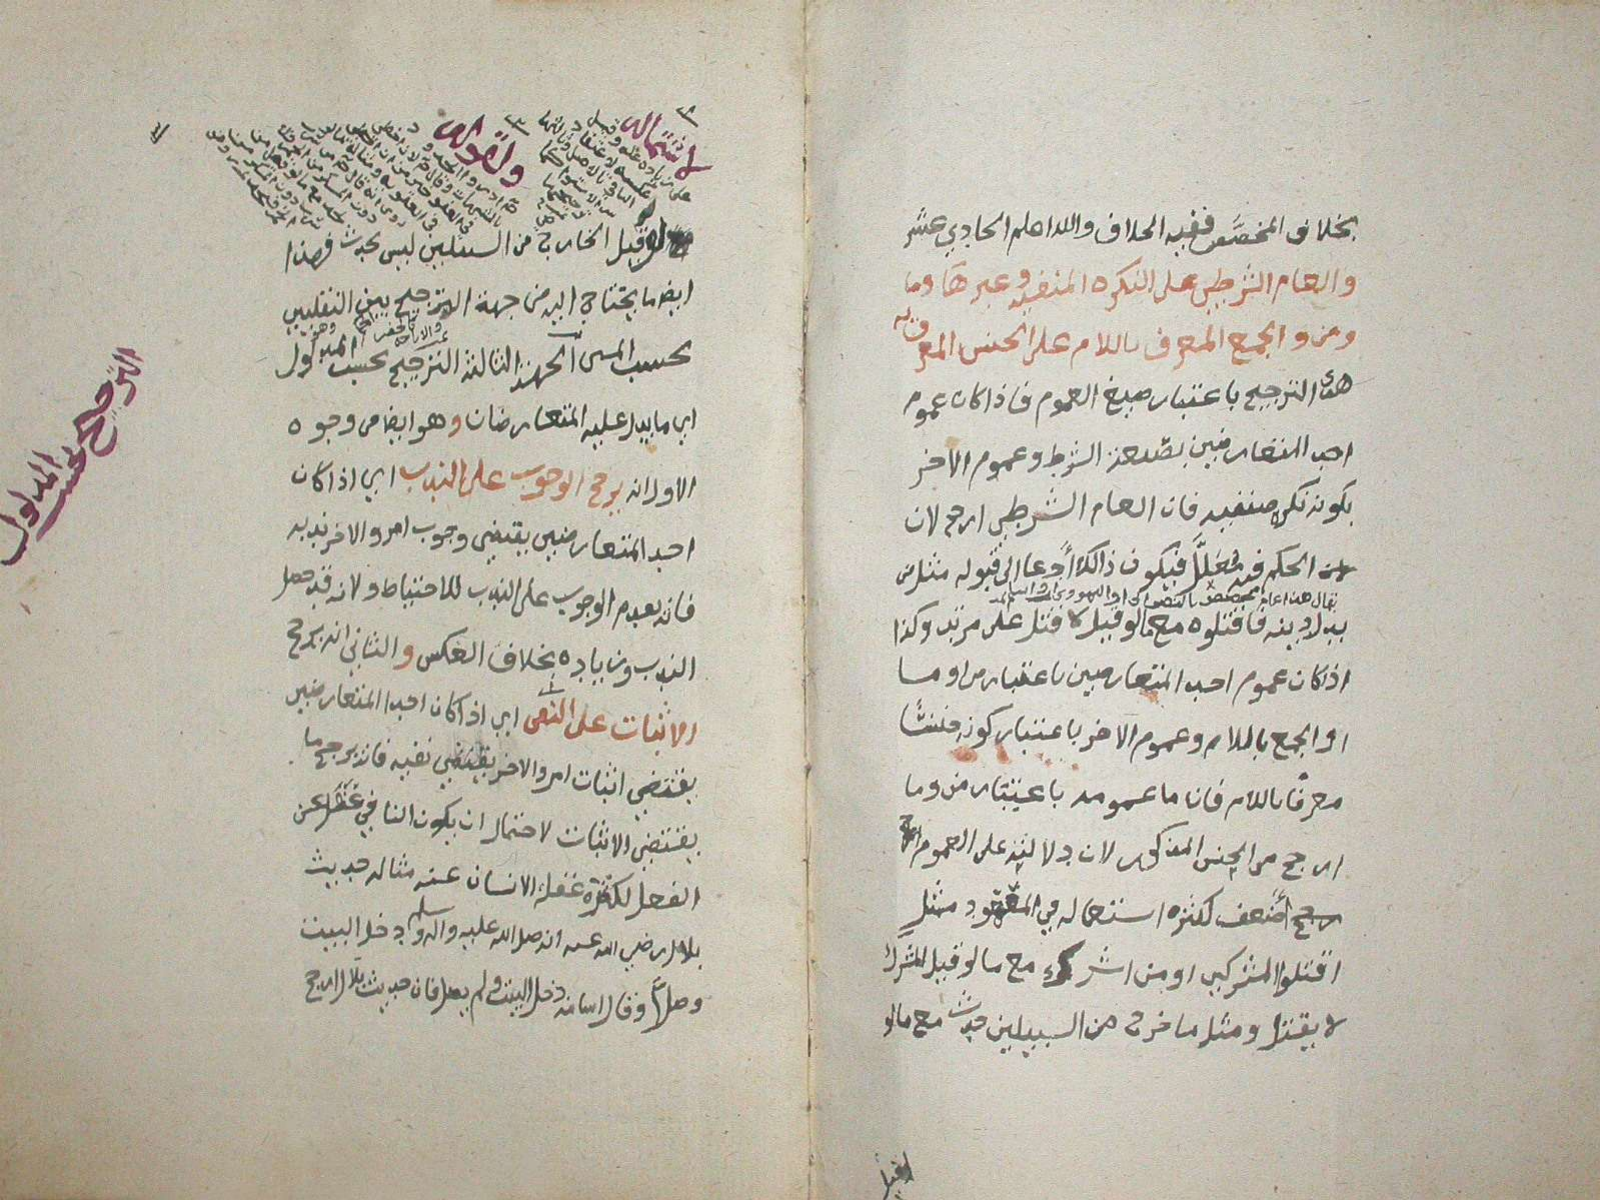 بخلاف المخصَّص ففيه الخلاف والله اعلم الحادي عشر
والعام الشرطي على النكرة المنفيه وغيرها وما
ومن والجمع المعرف باللام على الجنس المعرف به
هذا الترجيح باعتبار صيغ العموم فاذا كان عموم
احد المتعارضين بصيغة الشرط وعموم الاخر
بكونه نكرة منفيه فان العام الشرطي ارجح لان
الحكم فيه معلَّل فيكون ذالك أدعا الى قبوله مثل من
بدل دينه فاقتلوه مع ما لو قيل لا قتل على مرتد وكذا
اذا كان عموم احد المتعارضين باعتبار من او ما
او الجمع باللام وعموم الاخر باعتبار كونه جنسًا
معرفا باللام فان ما عمومه باعتبار من وما
ارجح من الجنس المذكور لان دلالته على العموم
أضعف لكثرة استعماله في المعهود مثل
اقتلوا المشركين او من اشرك مع ما لو قيل المشرك
لا يقتل ومثل ما خرج من السبيلين حدث مع ما لو
لو قيل
لاشتماله
ولقوله
قيل الخارج من السبيلين ليس بحدث فهذا
ايضا ما يحتاج اليه من جهة الترجيح بين النقليين
بحسب المتن الجهة الثالثة الترجيح بحسب المدلول
اي ما يدل عليه المتعارضان وهو ايضا من وجوه
الاول انه يرجح الوجوب على الندب اي اذا كان
احد المتعارضين يقتضي وجوب امر والاخر ندبه
فانه يقدم الوجوب على الندب للاحتياط ولانه قد حصل
الندب وزيادة بخلاف العكس والثاني انه يرجح
الاثبات على النفي اي اذا كان احد المتعارضين
يقتضي اثبات امر والاخر يقتضي نفيه فانه يرجح ما
يقتضي الاثبات لاحتمال ان يكون النافي غفل عن
الفعل لكثرة غفلة الانسان عنه مثاله حديث
بلال رضي الله عنه انه صلى الله عليه واله وسلم دخل البيت
وصلّا وقال اسامة دخل البيت ولم يصل فان حديث بلال ارجح
الترجيح بحسب المدلول